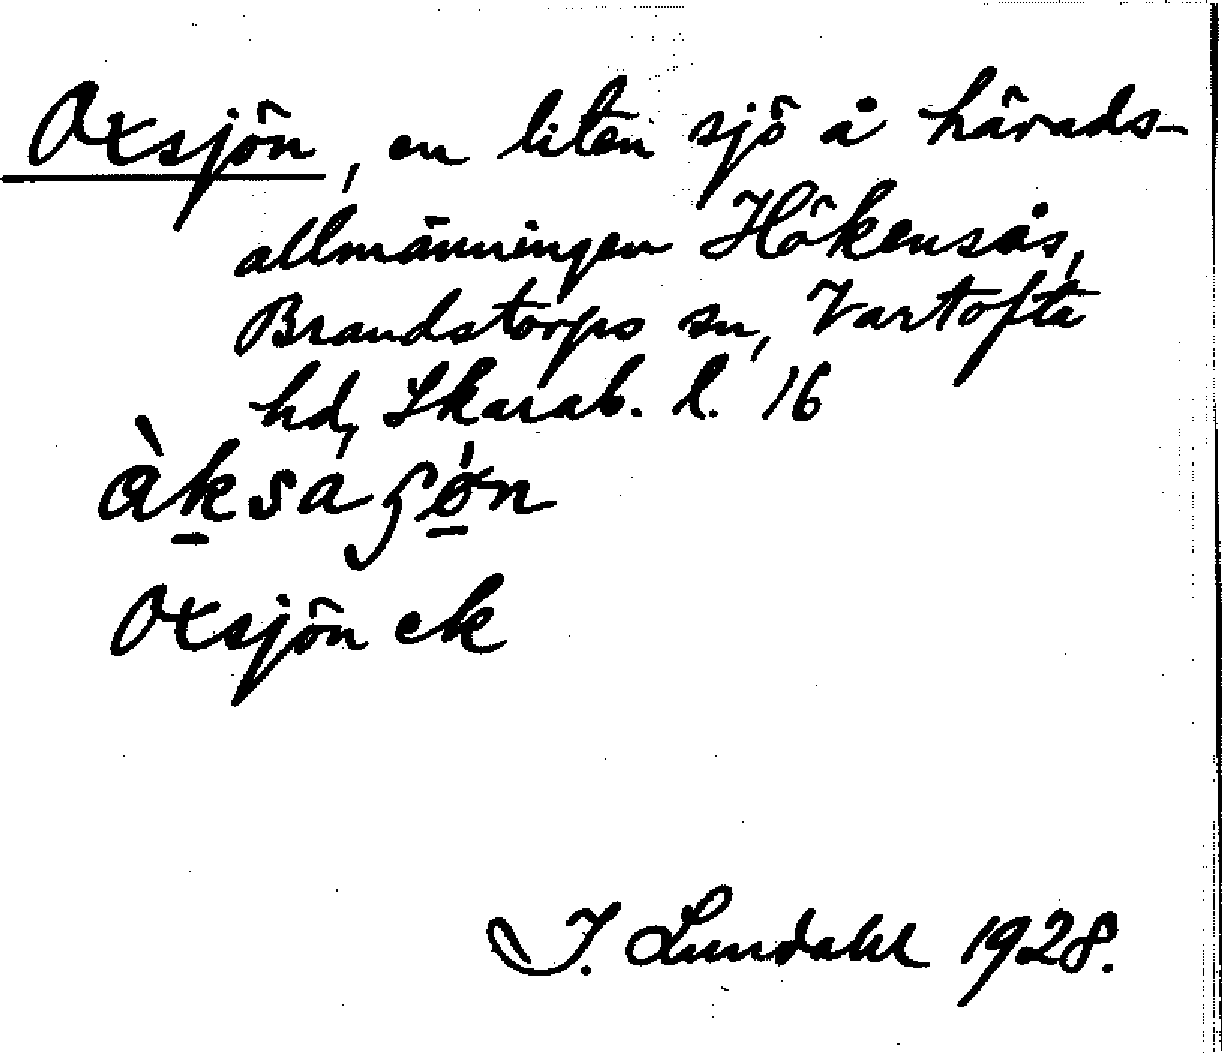 Oxsjön, en liten sjö å härads-
allmänningen Hökensås,
Brandstorps sn, Vartofta
hd, Skarab. l. 16
àksaʃø̱n
Oxsjön ek
I. Lundahl 1928.